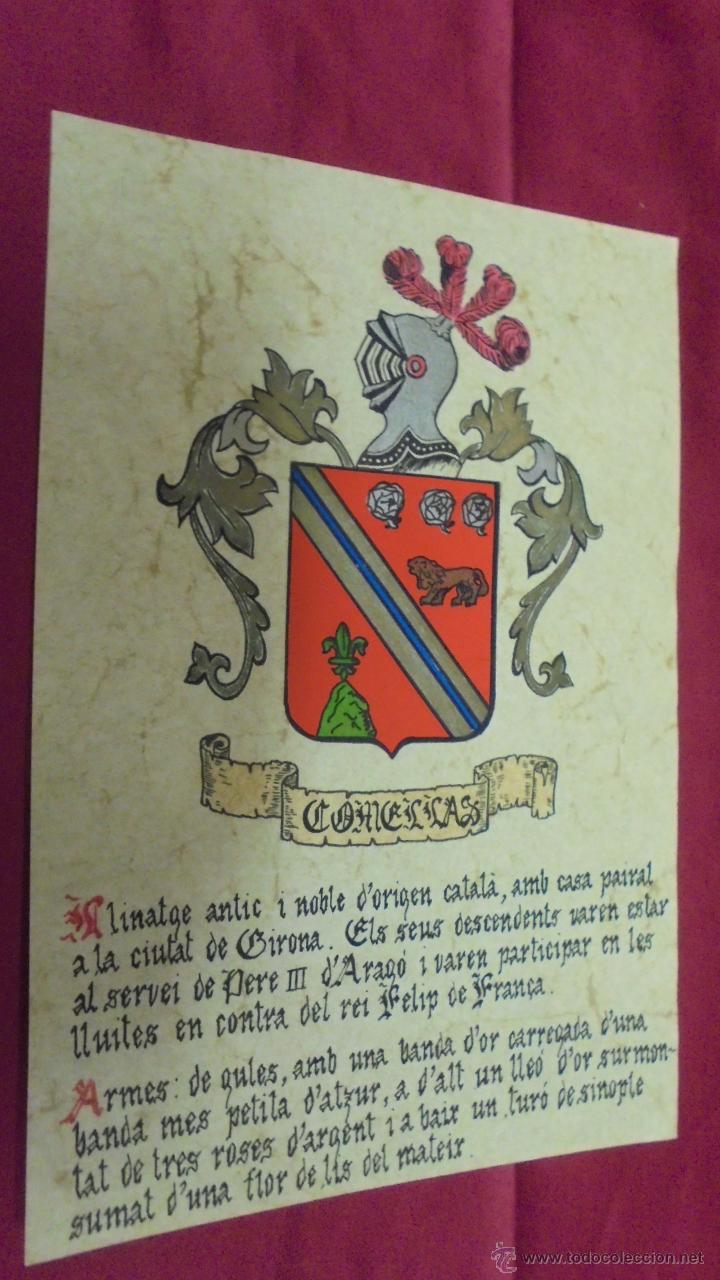 COMELLAS
Llinatge antic i noble d'origen català, amb casa pairal
a la ciutat de Girona. Els seus descendents varen estar
al servei de Pere III d'Aragó i varen participar en les
lluites en contra del rei Felip de França.
Armes: de gules, amb una banda d'or carregada d'una
banda mes petita d'atzur, a d'alt un lleó d'or surmon-
tat de tres roses d'argent i a baix un turó de sinople
sumat d'una flor de lis del mateix.
© www.todocoleccion.net